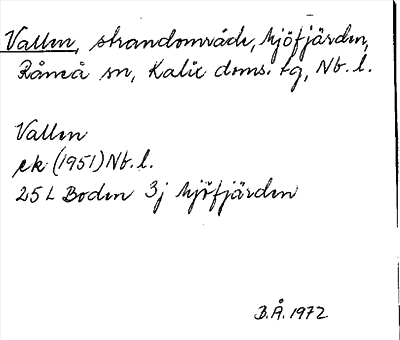 Vallen, strandområde, Mjöfjärden,
Råneå sn, Kalix doms. tg, Nb. l.
Vallen
ek (1951) Nb. l.
25 L Boden 3j Mjöfjärden
B.Å. 1972